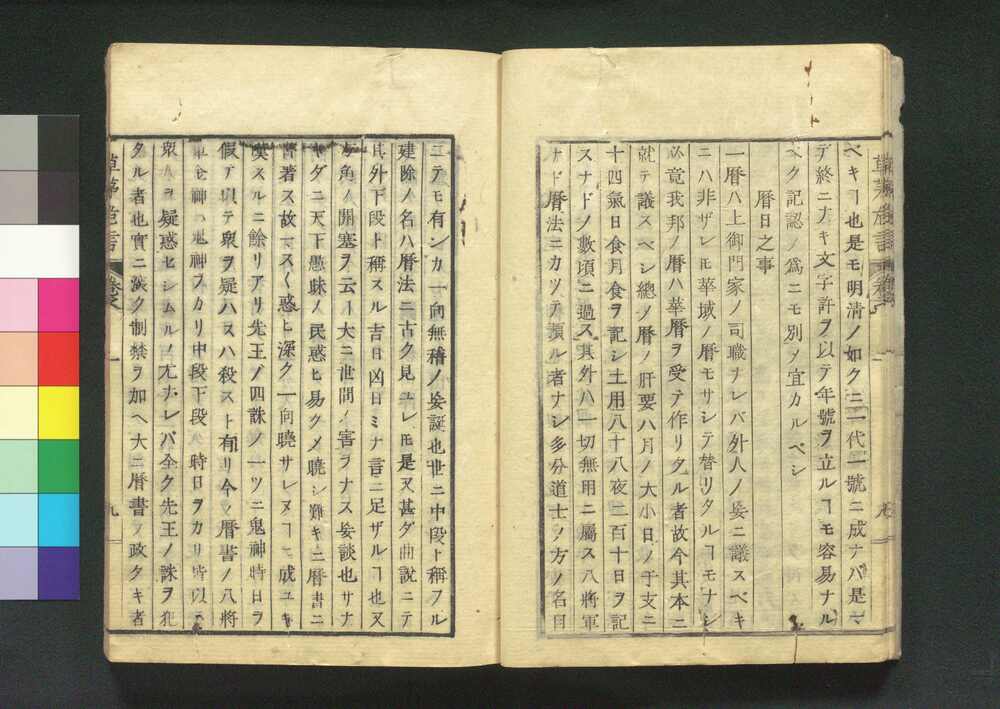 ベキヿ也是モ明清ノ如クニ一代一號ニ成ナバ是マ
デ終ニナキ文字許ヲ以テ年號ヲ立ルヿモ容易ナル
ベク記認ノ爲ニモ別ノ宜カルベシ
曆日之事
一曆ハ上御門家ノ司職ナレバ外人ノ妄ニ議スベキ
ニハ非ザレ𪜈華域ノ曆モサシテ替リタルヿモナシ
必竟我邦ノ曆ハ華曆ヲ受テ作リタル者故今其本ニ
就テ議スベシ總ノ曆ノ肝要ハ月ノ大小日ノ干支二
十四氣日食月食ヲ記シ土用八十八夜二百十日ヲ記
スナドノ數項ニ過ス其外ハ一切無用ニ屬ス八將軍
ナド曆法ニカツテ預ル者ナシ多分道士ノ方ノ名目
ニテモ有ンカ一向無稽ノ妄誕也世ニ中段ト稱フル
建除ノ名ハ曆法ニ古ク見ユレ𪜈是又甚ダ曲說ニテ
其外下段ト稱スル吉日凶日ミナ言ニ足ザルヿ也又
角ノ開塞ヲ云ヿ大ニ世間ノ害ヲナス妄談也サナ
キダニ天下愚昧ノ民惑ヒ易クメ曉シ難キニ曆書ニ
書著ス故マス〱惑ヒ深ク一向曉サレヌヿニ成ユキ
嘆スルニ餘リアリ先王ノ四誅ノ一ツニ鬼神時日ヲ
假テ以テ衆ヲ疑ハスハ殺スト有リ今ノ曆書ノ八將
軍金神ハ鬼神ヲカリ中段下段ハ時日ヲカリ皆以テ
衆人ヲ疑惑セシムルノ尤ナレバ全ク先王ノ誅ヲ犯
タル者也實ニ嚴ク制禁ヲ加ヘ大ニ曆書ノ政タキ者
草茅危言
九